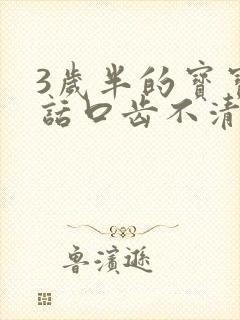 3歲半的寶寶
話口齒不清
魯濱遜